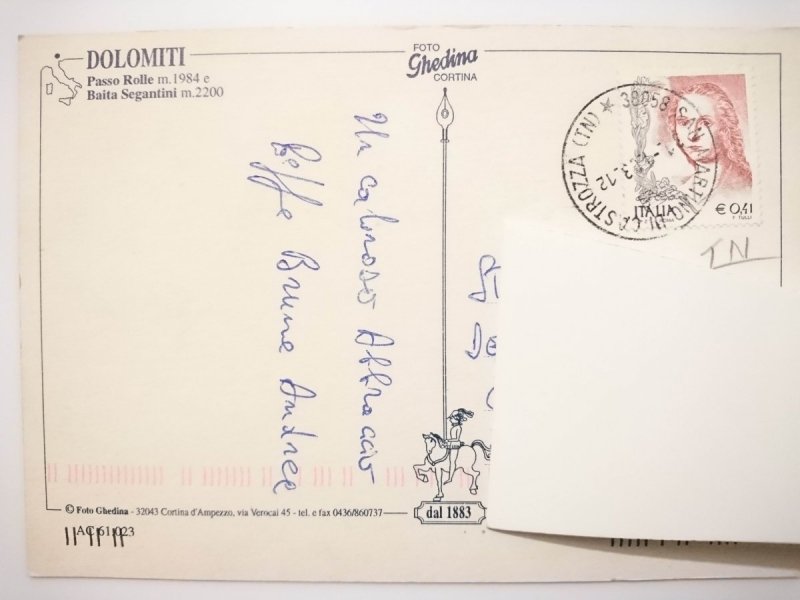 DOLOMITI
Passo Rolle m.1984 e
Baita Segantini m.2200
FOTO
Ghedina
CORTINA
Un caloroso Abbraccio
Beffe Bruna Andrea
38058 S. MARTINO DI CASTROZZA (TN) *
3.12
ITALIA
€ 0,41
F. TULLI
TN
© Foto Ghedina - 32043 Cortina d'Ampezzo, via Verocai 45 - tel. e fax 0436/860737
dal 1883
AC 61.023